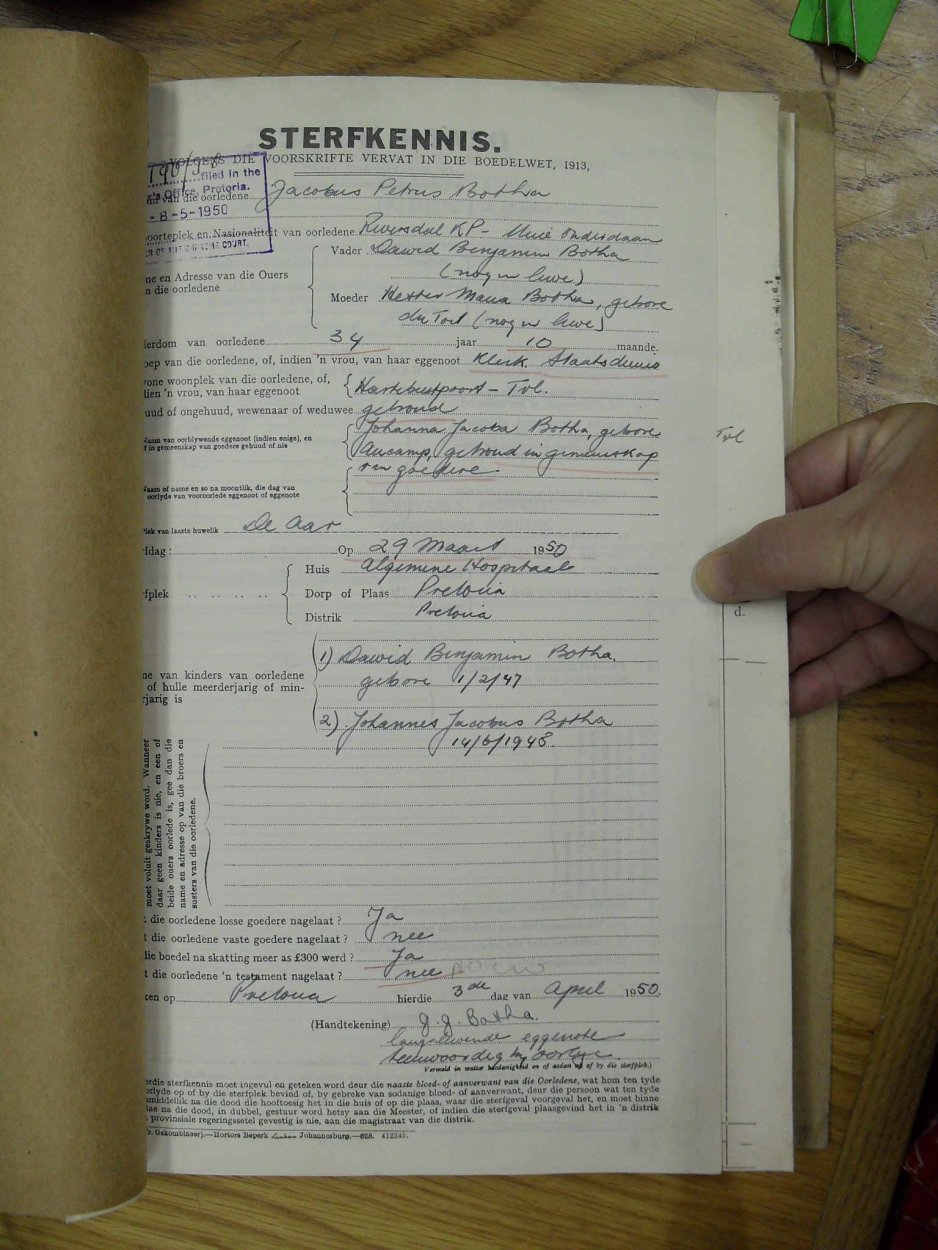 STERFKENNIS.
VOLGENS DIE VOORSKRIFTE VERVAT IN DIE BOEDELWET, 1913,
filed in the
Office, Pretoria.
-8-5-1950
COURT.
van die oorledene Jacobus Petrus Botha
oorteplek en Nasionaliteit van oorledene Riversdal KP - Unie Onderdaan
Vader Dawid Benjamin Botha
(nog in lewe)
ne en Adresse van die Ouers
n die oorledene
Moeder Hester Maria Botha, gebore
du Toit (nog in lewe)
derdom van oorledene 34 jaar 10 maande.
oep van die oorledene, of, indien 'n vrou, van haar eggenoot Klerk. Staatsdiens
wone woonplek van die oorledene, of,
dien 'n vrou, van haar eggenoot
Hartebeestpoort - Tvl.
uud of ongehuud, wewenaar of weduwee getroud
Naam van oorblywende eggenoot (indien enige), en
of in gemeenskap van goedere gehuud of nie
Johanna Jacoba Botha, gebore
Aucamp, getroud in gemeenskap
van goedere.
Naam of name en so na moontlik, die dag van
oorlyde van vooroorlede eggenoot of eggenote
Plek van laaste huwelik De Aar
fdag: Op 29 Maart 1950
Huis Algemene Hospitaal
rfplek Dorp of Plaas Pretoria
Distrik Pretoria
ne van kinders van oorledene
of hulle meerderjarig of min-
rjarig is
1) Dawid Benjamin Botha.
gebore 1/2/47
2) Johannes Jacobus Botha
14/6/1948.
moet voluit geskrywe word. Wanneer
daar geen kinders is nie, en een of
beide ouers oorlede is, gee dan die
name en adresse op van die broers en
susters van die oorledene.
t die oorledene losse goedere nagelaat? Ja
t die oorledene vaste goedere nagelaat? nee
die boedel na skatting meer as £300 werd? Ja
t die oorledene 'n testament nagelaat? nee
ken op Pretoria hierdie 3de dag van April 1950.
(Handtekening) J. J. Botha.
langslewende eggenote
teenwoordig by oorlye.
Vermeld in watter hoedanigheid en of aldan of by die sterfplek.)
erdie sterfkennis moet ingevul en geteken word deur die naaste bloed- of aanverwant van die Oorledene, wat hom ten tyde
orlyde op of by die sterfplek bevind of, by gebreke van sodanige bloed- of aanverwant, deur die persoon wat ten tyde
nmiddelik na die dood die hooftoesig het in die huis of op die plaas, waar die sterfgeval voorgeval het, en moet binne
ae na die dood, in dubbel, gestuur word hetsy aan die Meester, of indien die sterfgeval plaasgevind het in 'n distrik
provinsiale regeringssetel gevestig is nie, aan die magistraat van die distrik.
r. Gekombineer).—Hortors Beperk Johannesburg.—628. 412340.
Tvl
d.